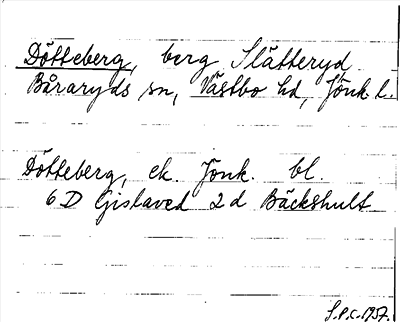 Dötteberg, berg Slätteryd
Båraryds sn, Västbo hd, Jönk. l.
Dötteberg, ek. Jönk. bl.
6 D Gislaved 2 d Bäckshult
S.P.C. 1957.